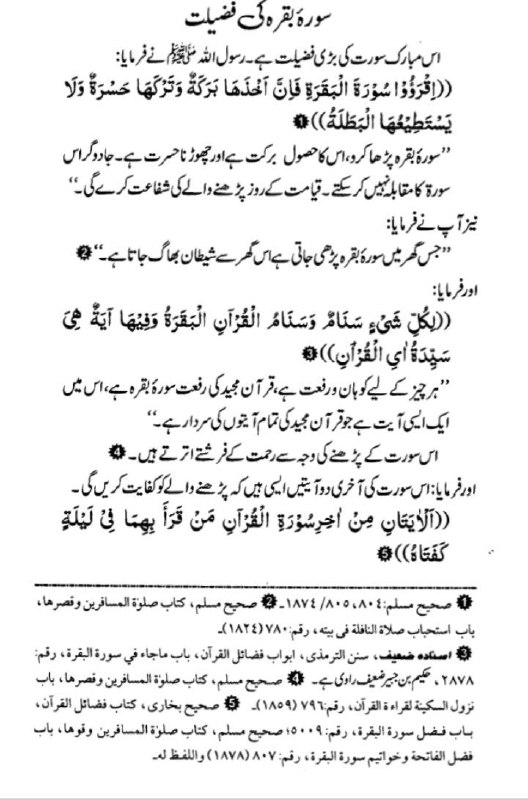 سورۂ بقرہ کی فضیلت
اس مبارک سورت کی بڑی فضیلت ہے۔ رسول اللہ ﷺ نے فرمایا:
((اِقْرَؤُوْا سُوْرَةَ الْبَقَرَةِ فَاِنَّ اَخْذَهَا بَرَكَةٌ وَتَرْكَهَا حَسْرَةٌ وَلَا
يَسْتَطِيْعُهَا الْبَطَلَةُ))❶
”سورۂ بقرہ پڑھا کرو، اس کا حصول برکت ہے اور چھوڑنا حسرت ہے۔ جادوگر اس
سورۃ کا مقابلہ نہیں کر سکتے۔ قیامت کے روز پڑھنے والے کی شفاعت کرے گی۔“
نیز آپ نے فرمایا:
”جس گھر میں سورۂ بقرہ پڑھی جاتی ہے اس گھر سے شیطان بھاگ جاتا ہے۔“❷
اور فرمایا:
((لِكُلِّ شَيْءٍ سَنَامٌ وَسَنَامُ الْقُرْآنِ الْبَقَرَةُ وَفِيْهَا آيَةٌ هِيَ
سَيِّدَةُ اٰيِ الْقُرْآنِ))❸
”ہر چیز کے لیے کوہان و رفعت ہے، قرآن مجید کی رفعت سورۂ بقرہ ہے، اس میں
ایک ایسی آیت ہے جو قرآن مجید کی تمام آیتوں کی سردار ہے۔“
اس سورت کے پڑھنے کی وجہ سے رحمت کے فرشتے اترتے ہیں۔❹
اور فرمایا: اس سورت کی آخری دو آیتیں ایسی ہیں کہ پڑھنے والے کو کفایت کریں گی۔
((اَلْاٰيَتَانِ مِنْ اٰخِرِ سُوْرَةِ الْقُرْآنِ مَنْ قَرَأَ بِهِمَا فِيْ لَيْلَةٍ
كَفَتَاهُ))❺
❶ صحیح مسلم:۸۰۴، ۸۰۵/ ۱۸۷۴۔ ❷ صحیح مسلم، کتاب صلوٰۃ المسافرین وقصرها،
باب استحباب صلاۃ النافلة فی بیته، رقم:۷۸۰(۱۸۲۴)۔
❸ اسناده ضعیف، سنن الترمذی، ابواب فضائل القرآن، باب ماجاء في سورة البقرة، رقم:
۲۸۷۸، حکیم بن جبیر ضعیف راوی ہے۔ ❹ صحیح مسلم، کتاب صلوٰۃ المسافرین وقصرها، باب
نزول السكينة لقراءة القرآن، رقم:۷۹۶(۱۸۵۹)۔ ❺ صحیح بخاری، کتاب فضائل القرآن،
باب فضل سورة البقرة، رقم:۵۰۰۹؛ صحیح مسلم، کتاب صلوٰۃ المسافرین وقوها، باب
فضل الفاتحة وخواتيم سورة البقرة، رقم:۸۰۷ (۱۸۷۸) واللفظ له۔